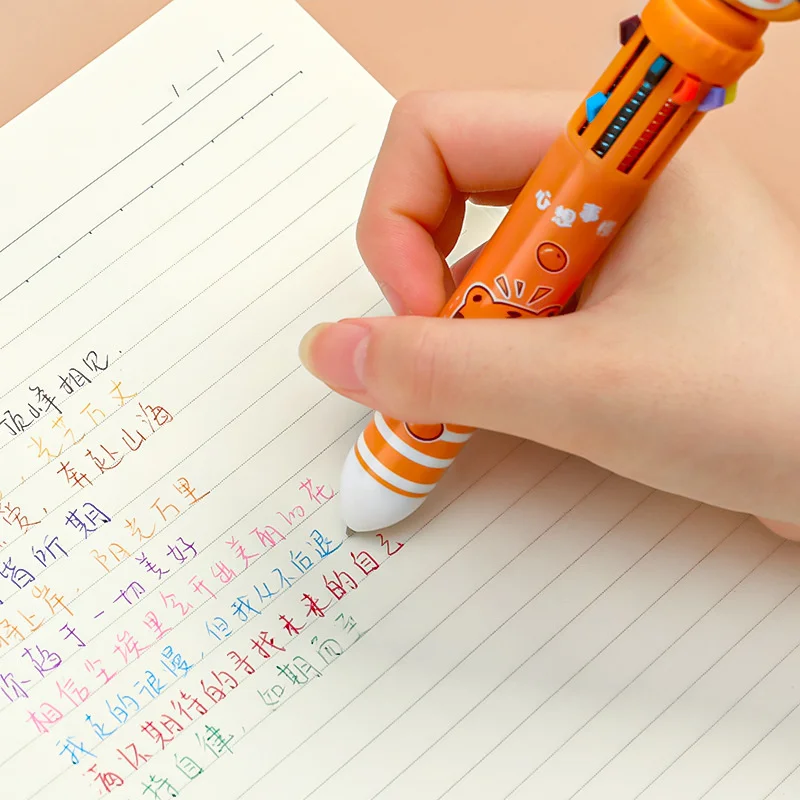 心想事
顶峰相见.
光芒万丈
爱, 奔赴山海
皆所期, 阳光万里
得上岸,
你趋于一切美好
相信尘埃里会开出美丽的花
我走的很慢, 但我从不后退
满怀期待的寻找未来的自己
持自律, 如期而至